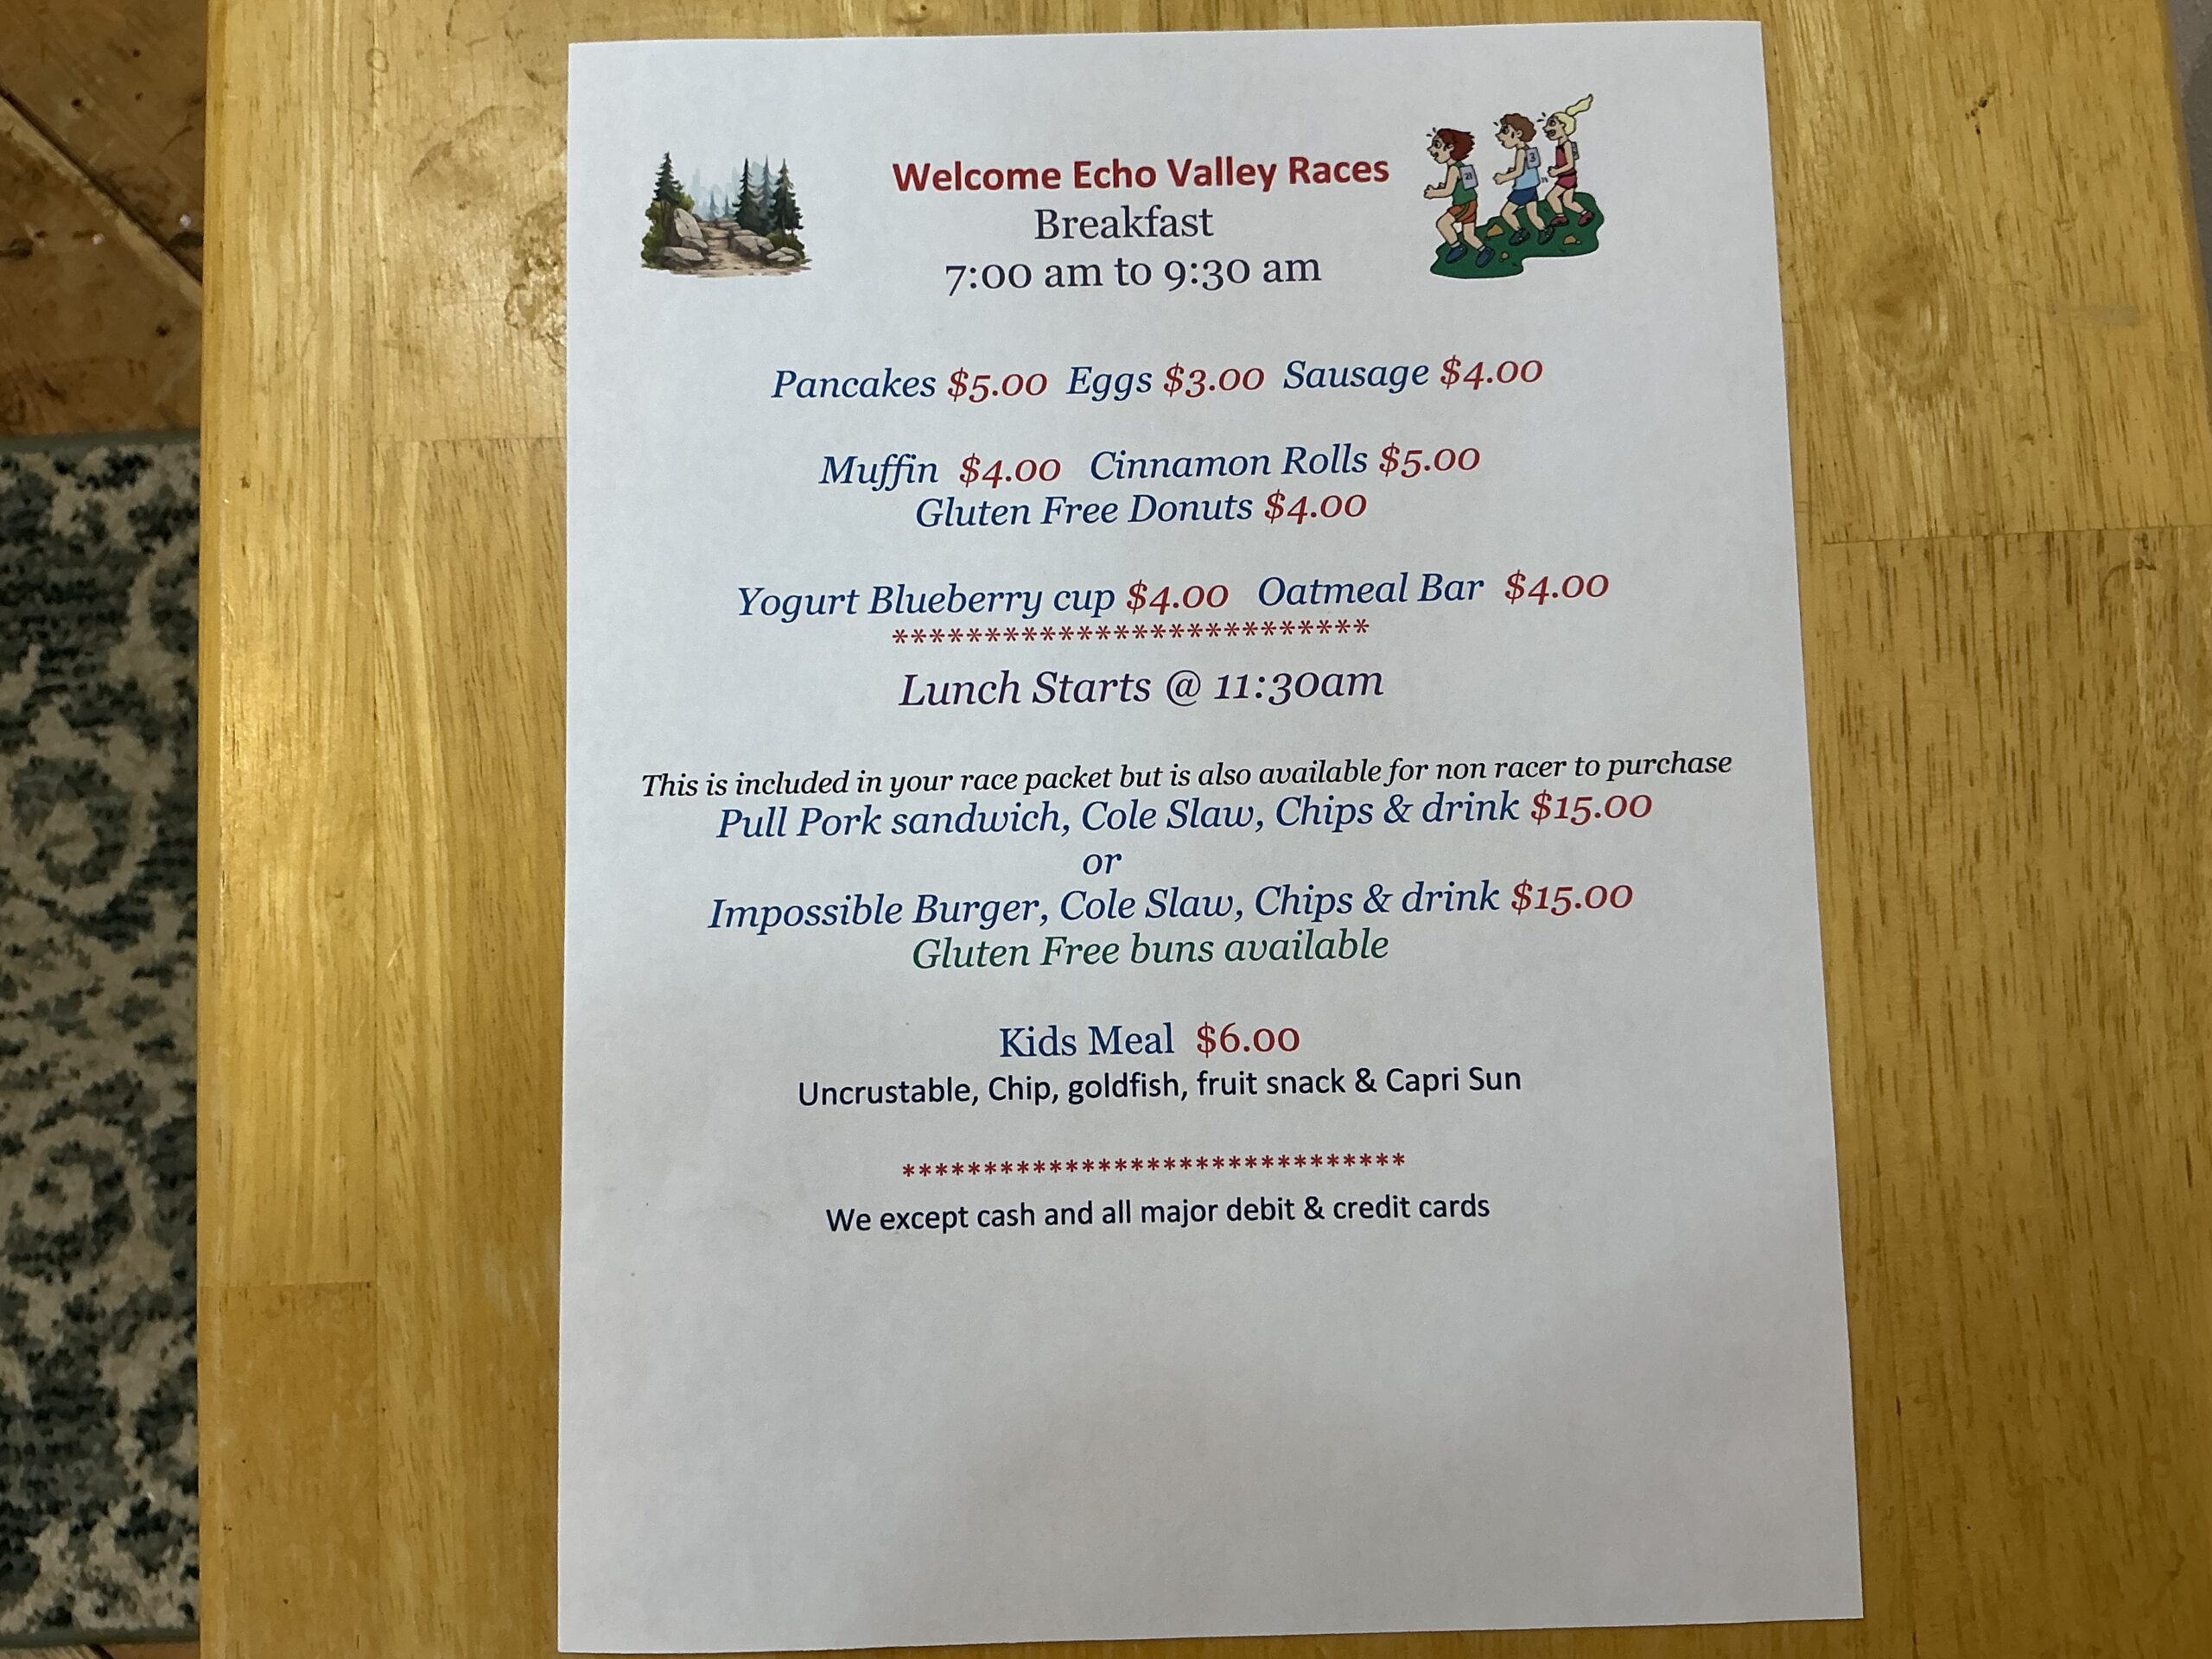 Welcome Echo Valley Races
Breakfast
7:00 am to 9:30 am
Pancakes $5.00 Eggs $3.00 Sausage $4.00
Muffin $4.00 Cinnamon Rolls $5.00
Gluten Free Donuts $4.00
Yogurt Blueberry cup $4.00 Oatmeal Bar $4.00
**************************
Lunch Starts @ 11:30am
This is included in your race packet but is also available for non racer to purchase
Pull Pork sandwich, Cole Slaw, Chips & drink $15.00
or
Impossible Burger, Cole Slaw, Chips & drink $15.00
Gluten Free buns available
Kids Meal $6.00
Uncrustable, Chip, goldfish, fruit snack & Capri Sun
*******************************
We except cash and all major debit & credit cards